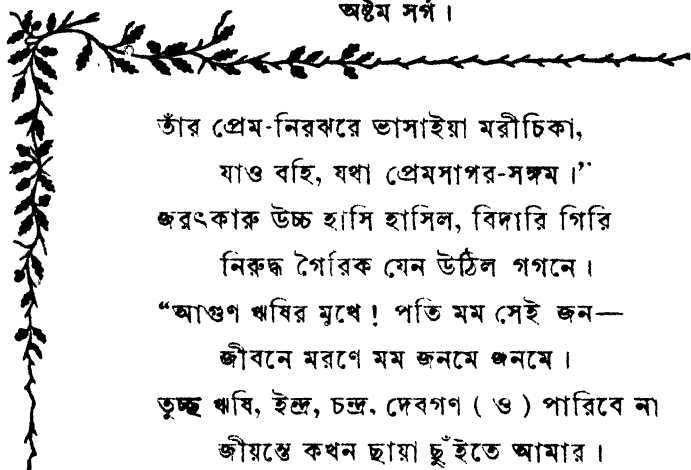 অষ্টম সর্গ।
তাঁর প্রেম-নিরঝরে ভাসাইয়া মরীচিকা,
যাও বহি, যথা প্রেমসাগর-সঙ্গম।”
জরৎকারু উচ্চ হাসি হাসিল, বিদারি গিরি
নিরুদ্ধ গৈরিক যেন উঠিল গগনে।
“আগুণ ঋষির মুখে! পতি মম সেই জন—
জীবনে মরণে মম জনমে জনমে।
তুচ্ছ ঋষি, ইন্দ্র, চন্দ্র, দেবগণ (ও) পারিবে না
জীয়ন্তে কখন ছায়া ছুঁইতে আমার।